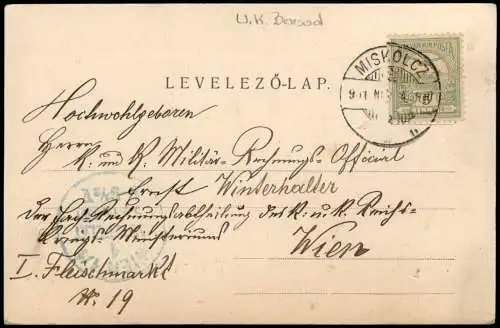 U.K. Borsod
MISKOLCZ
LEVELEZŐ-LAP.
Hochwohlgeboren
Herrn
K. und K. Militär-Rechnungs-Official
Ernst Winterhalter
der Fach-Rechnungsabtheilung des K. u. k. Reichs-
Kriegs-Ministeriums
Wien
I. Fleischmarkt
No. 19